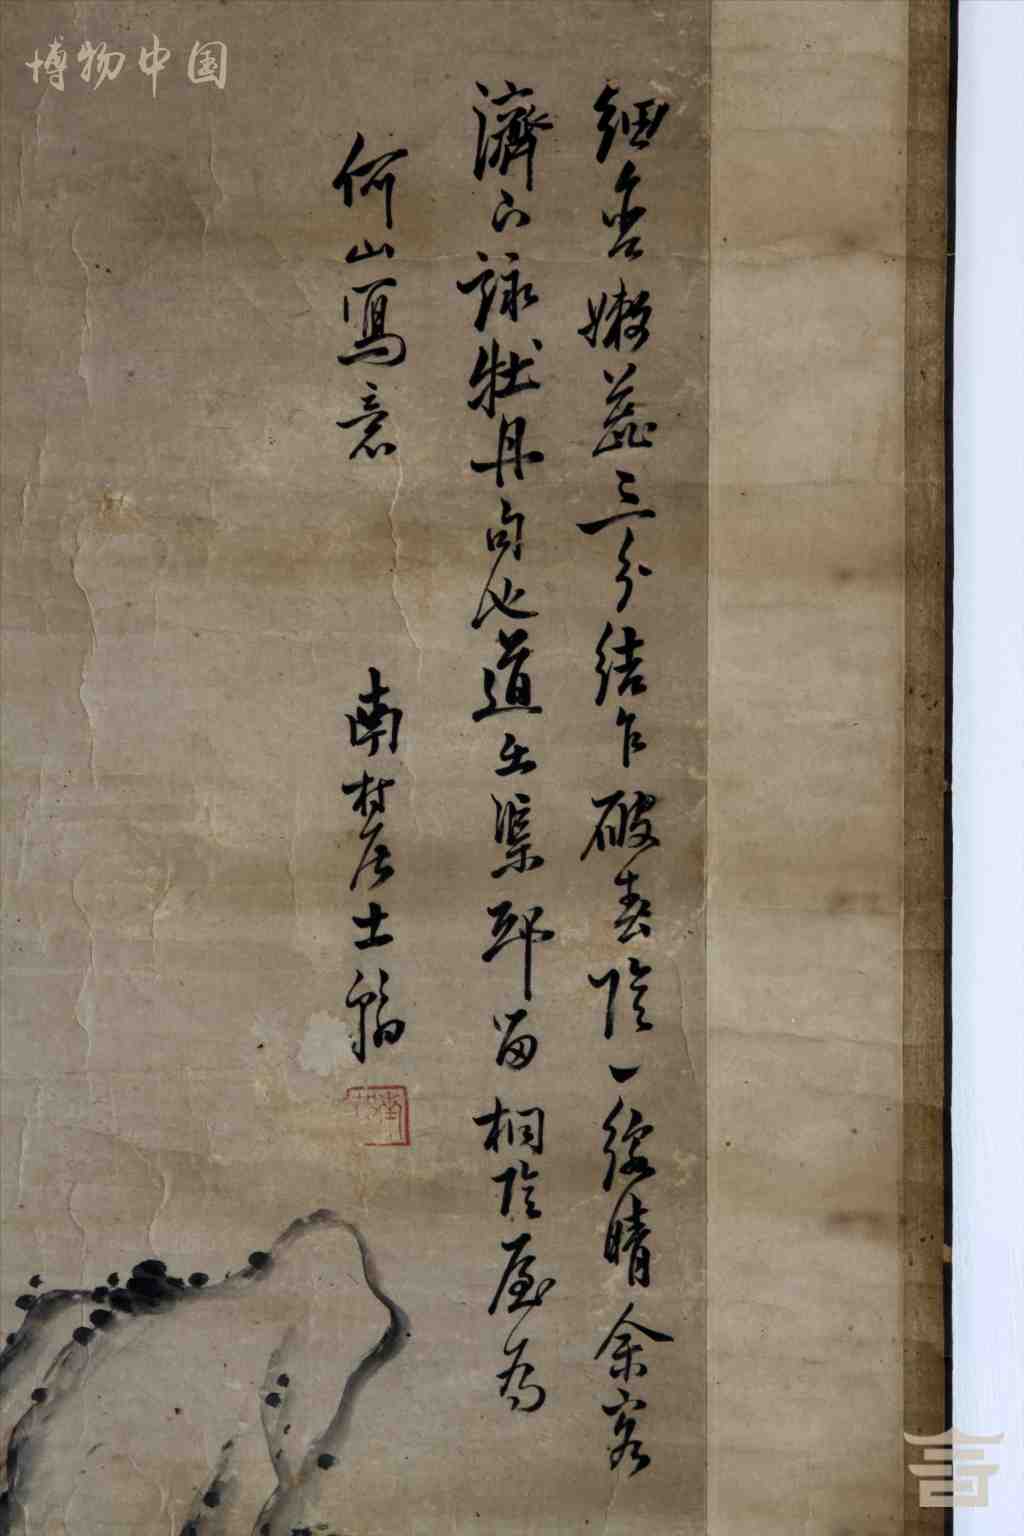 博物中国
細含嫩蕊三分結乍破春陰一線晴余客
濟下詠牡丹句也道出渠邱留桐陰屋為
何山寫意
南村居士翰